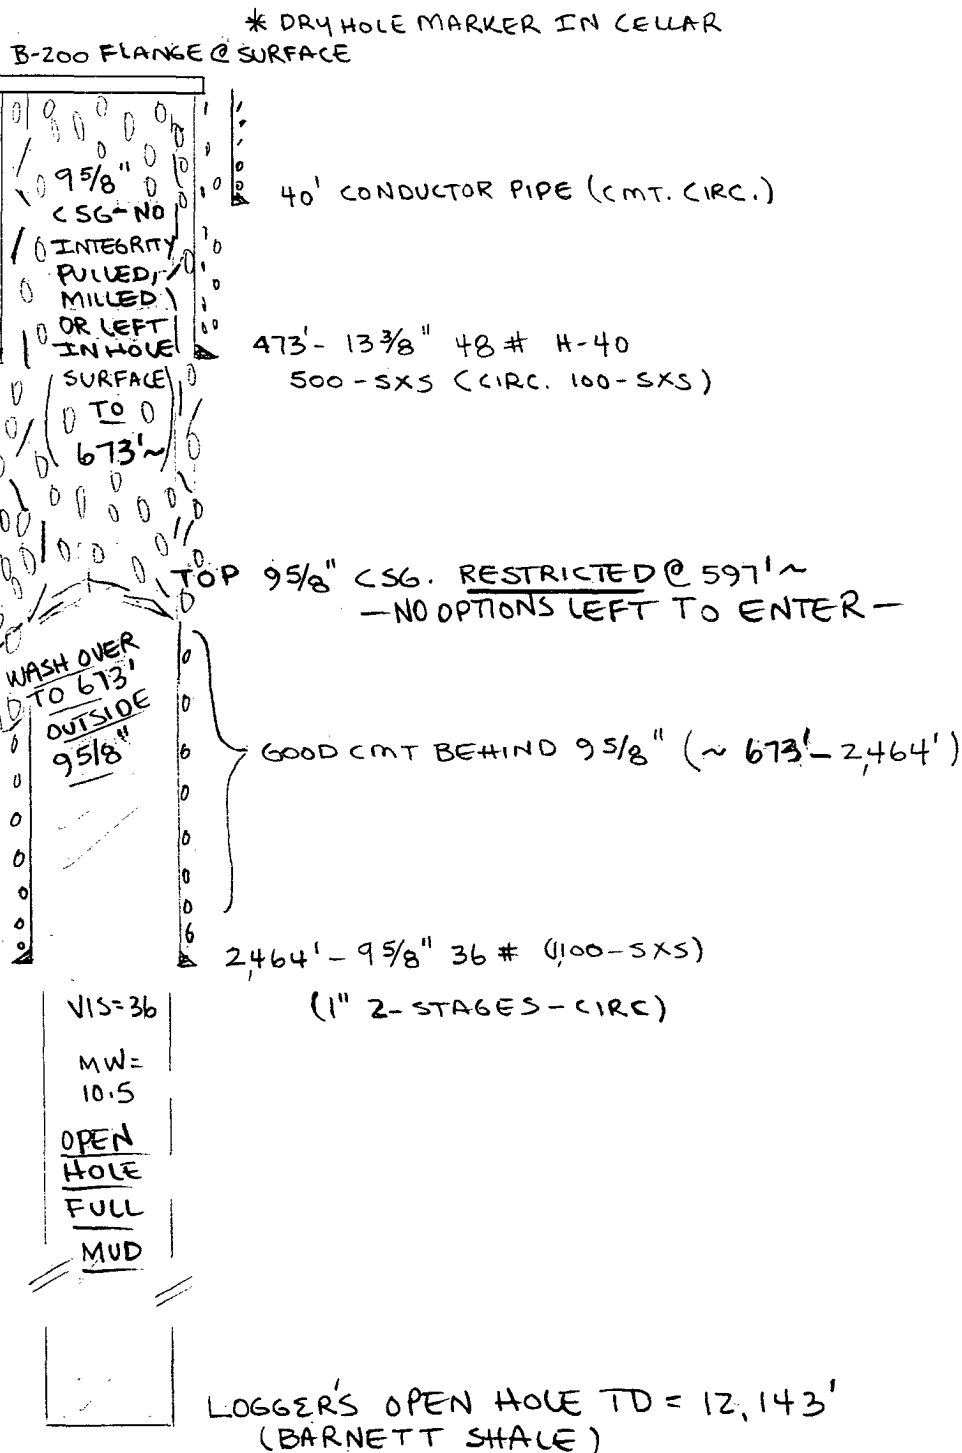 * DRY HOLE MARKER IN CELLAR
B-200 FLANGE @ SURFACE
9 5/8"
CSG-NO
INTEGRITY
PULLED,
MILLED
OR LEFT
IN HOLE
(SURFACE
TO
673'~)
40' CONDUCTOR PIPE (CMT. CIRC.)
473' - 13 3/8" 48# H-40
500-SXS (CIRC. 100-SXS)
TOP 9 5/8" CSG. RESTRICTED @ 597'~
—NO OPTIONS LEFT TO ENTER—
WASH OVER
TO 673'
OUTSIDE
9 5/8"
GOOD CMT BEHIND 9 5/8" (~ 673' - 2,464')
2,464' - 9 5/8" 36# (1,100-SXS)
(1" 2-STAGES-CIRC)
VIS=36
MW=
10.5
OPEN
HOLE
FULL
MUD
LOGGER'S OPEN HOLE TD = 12,143'
(BARNETT SHALE)